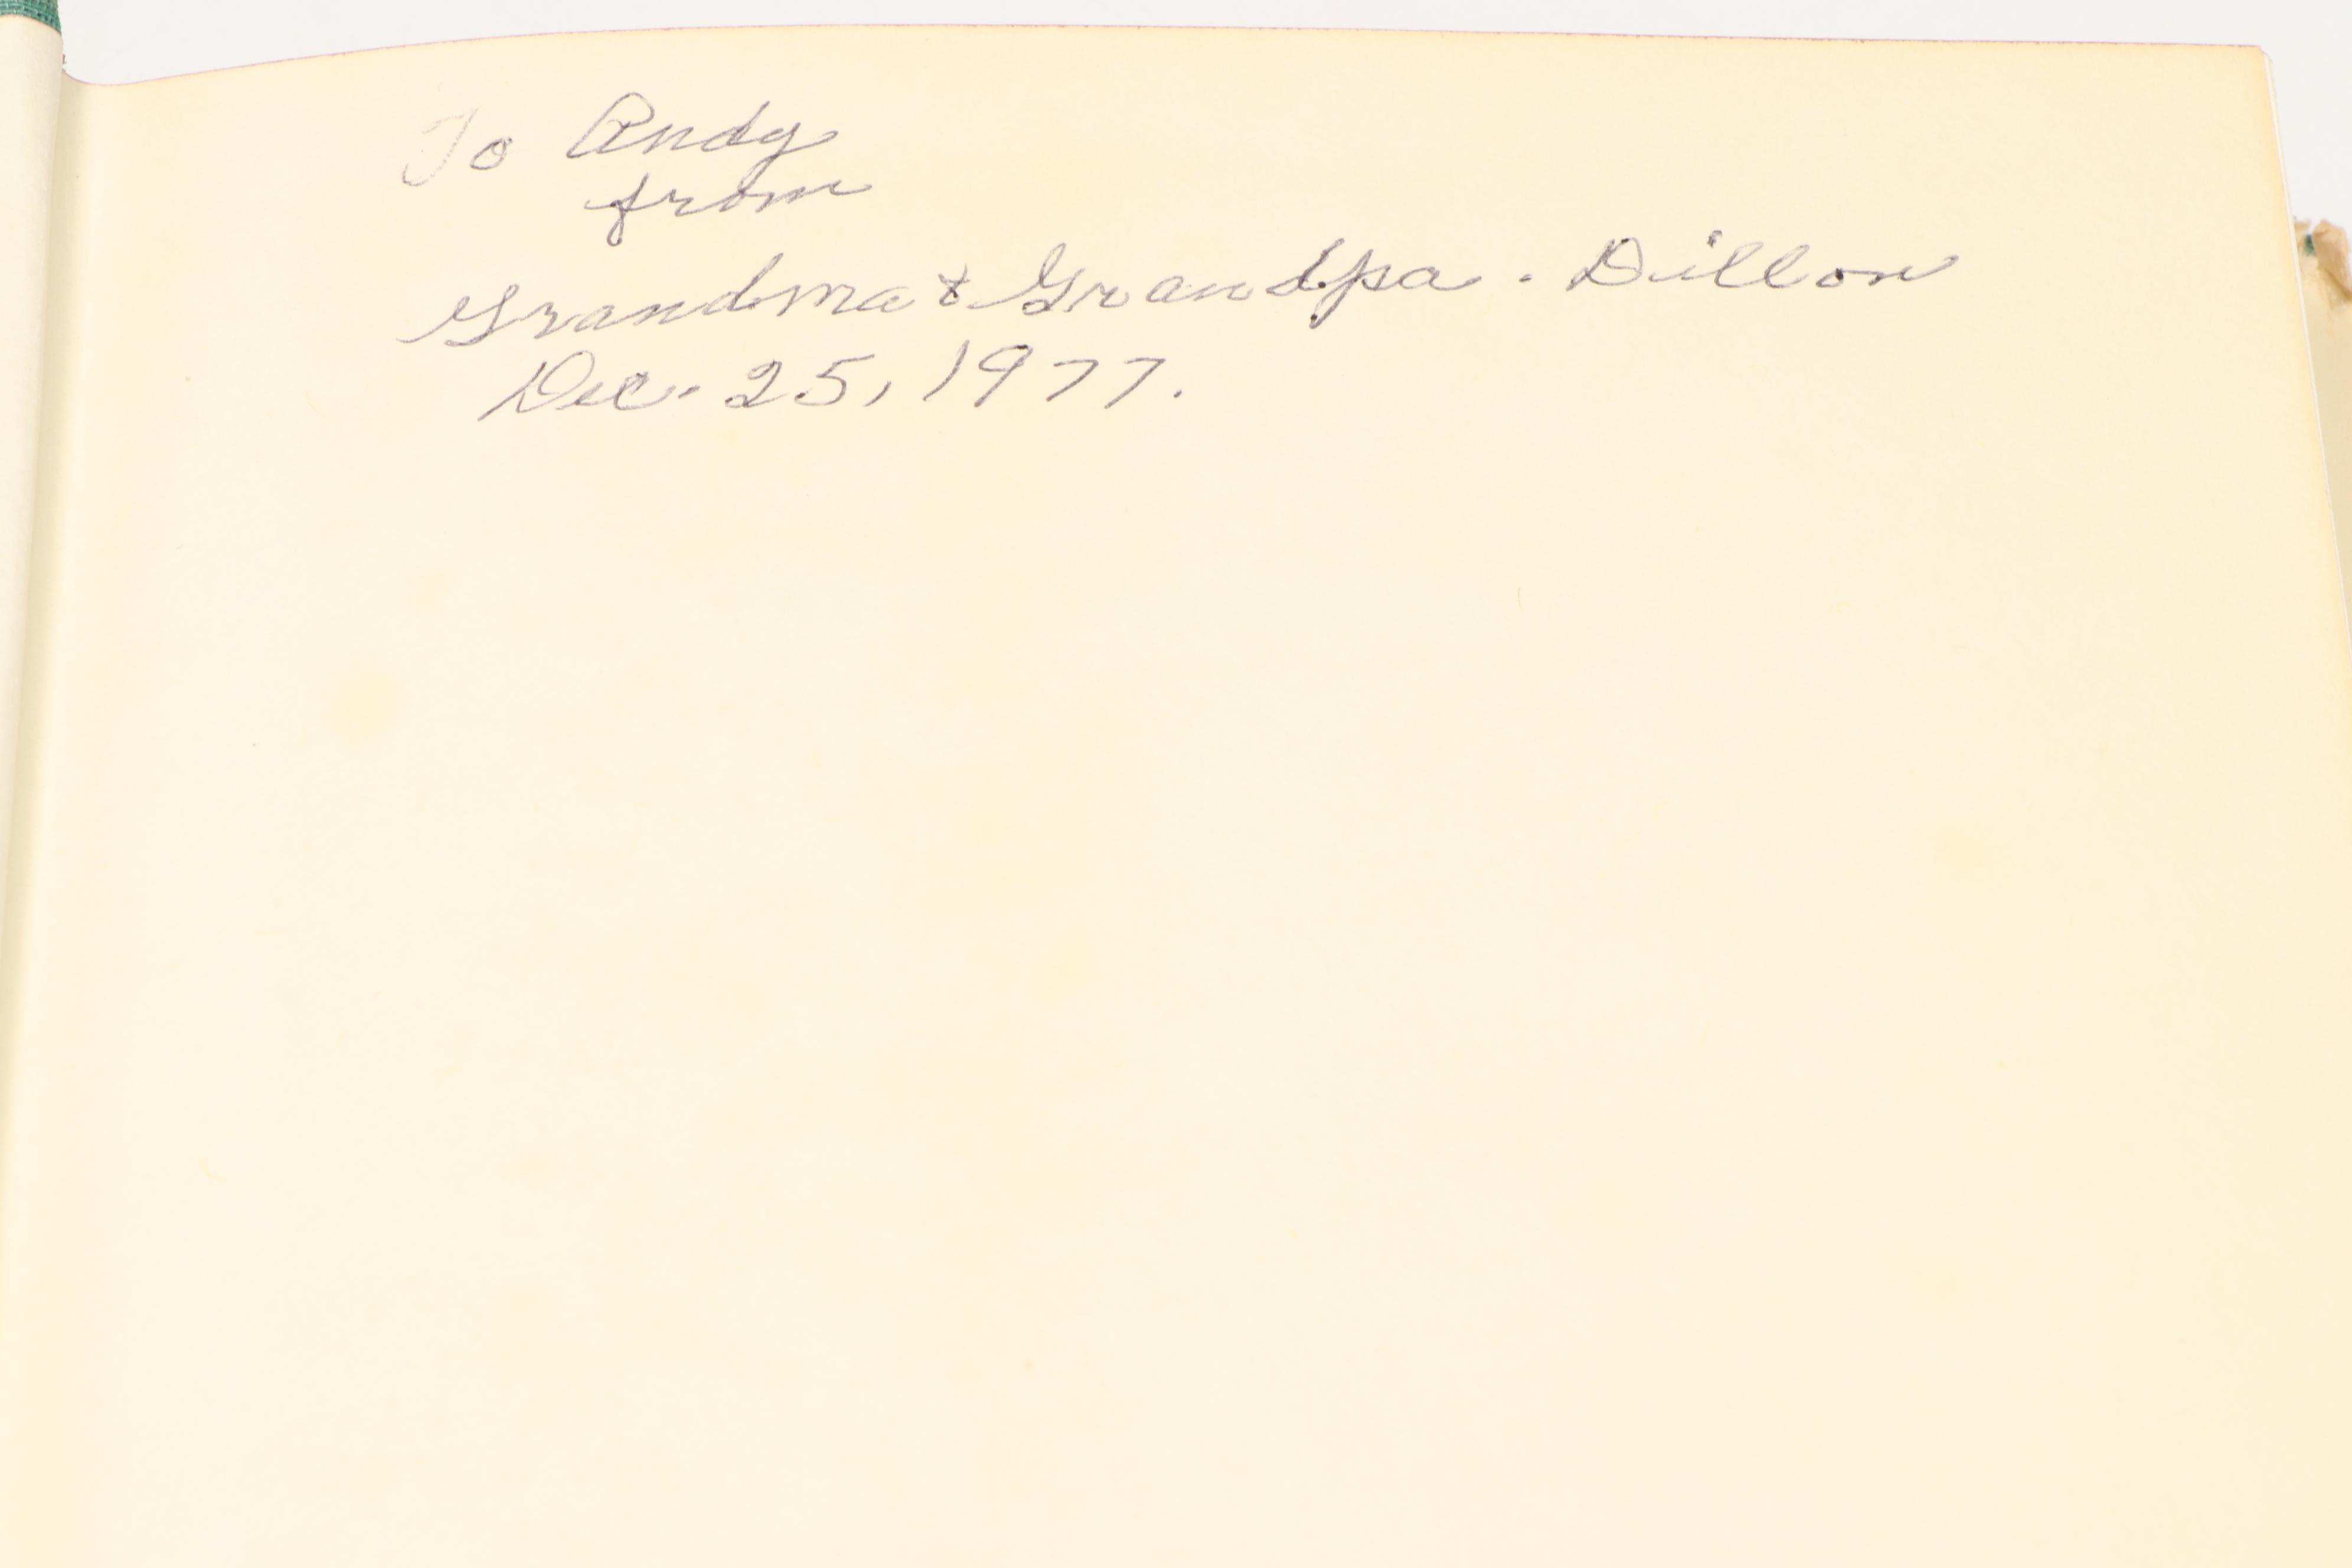 To Andy
from
Grandma & Grandpa. Dillon
Dec. 25, 1977.